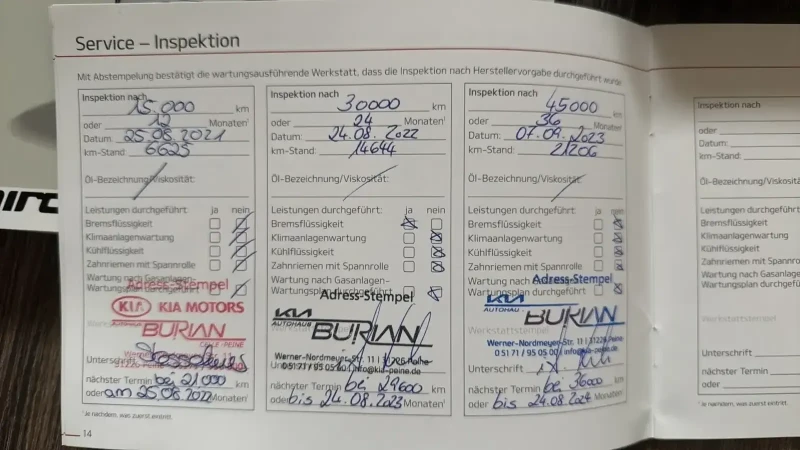 Service – Inspektion
Mit Abstempelung bestätigt die wartungsausführende Werkstatt, dass die Inspektion nach Herstellervorgabe durchgeführt wurde
Inspektion nach 15.000 km
oder 12 Monaten¹
Datum: 25.08.2021
km-Stand: 6625
Öl-Bezeichnung/Viskosität:
Leistungen durchgeführt: ja nein
Bremsflüssigkeit
Klimaanlagenwartung
Kühlflüssigkeit
Zahnriemen mit Spannrolle
Wartung nach Gasanlagen-
Wartungsplan durchgeführt
Adress-Stempel
KIA KIA MOTORS
BURIAN
CELLE-PEINE
Unterschrift
nächster Termin bei 21.000 km
oder am 25.08.2022 Monaten¹
Inspektion nach 30000 km
oder 24 Monaten¹
Datum: 24.08.2022
km-Stand: 14644
Öl-Bezeichnung/Viskosität:
Leistungen durchgeführt: ja nein
Bremsflüssigkeit
Klimaanlagenwartung
Kühlflüssigkeit
Zahnriemen mit Spannrolle
Wartung nach Gasanlagen-
Wartungsplan durchgeführt
Adress-Stempel
KIA
AUTOHAUS BURIAN
Werner-Nordmeyer-Str. 11 | 31226 Peine
0 51 71 / 95 05 00 | info@kia-peine.de
nächster Termin bei 29600 km
oder bis 24.08.2023 Monaten¹
Inspektion nach 45000 km
oder 36 Monaten¹
Datum: 07.09.2023
km-Stand: 21206
Öl-Bezeichnung/Viskosität:
Leistungen durchgeführt: ja nein
Bremsflüssigkeit
Klimaanlagenwartung
Kühlflüssigkeit
Zahnriemen mit Spannrolle
Wartung nach
Wartungsplan durchgeführt
Adress-Stempel
KIA
AUTOHAUS BURIAN
Werkstattstempel
Werner-Nordmeyer-Str. 11 | 31226 Peine
0 51 71 / 95 05 00 | info@kia-peine.de
Unterschrift
nächster Termin bei 36000 km
oder bis 24.08.2024 Monaten¹
¹ Je nachdem, was zuerst eintritt.
14
Inspektion nach
oder
Datum:
km-Stand:
Öl-Bezeichnung/Viskosität:
Leistungen durchgeführt
Bremsflüssigkeit
Klimaanlagenwartung
Kühlflüssigkeit
Zahnriemen mit Spannrolle
Wartung nach Gasanlagen-
Wartungsplan durchgeführt
Werkstattstempel
Unterschrift
nächster Termin
oder
¹ Je nachdem, was zuerst eintritt.